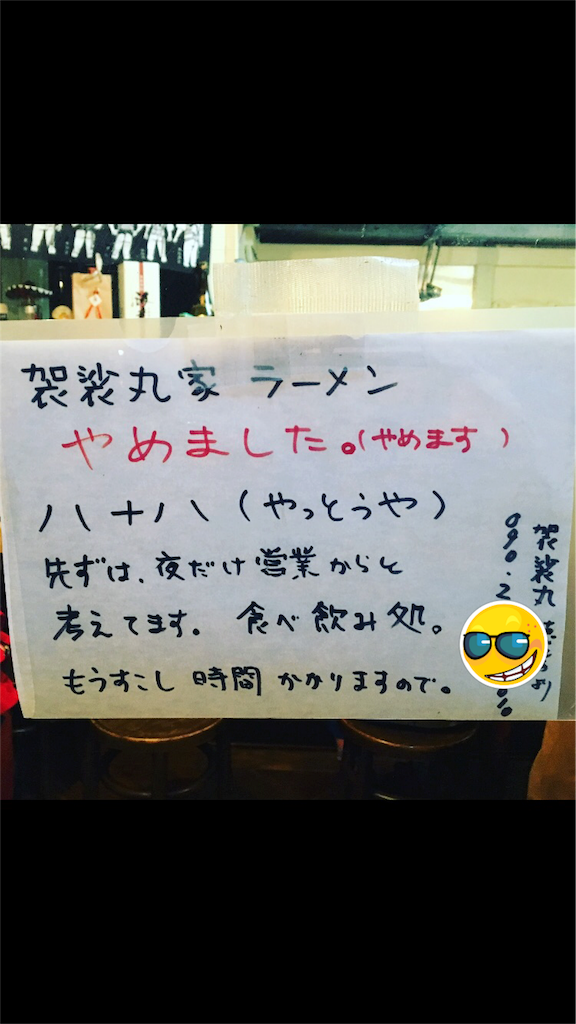 袈裟丸家 ラーメン
やめました。(やめます)
八十八(やっとうや)
先ずは、夜だけ営業からと
考えてます。 食べ飲み処。
もうすこし 時間 かかりますので。
袈裟丸
090.2